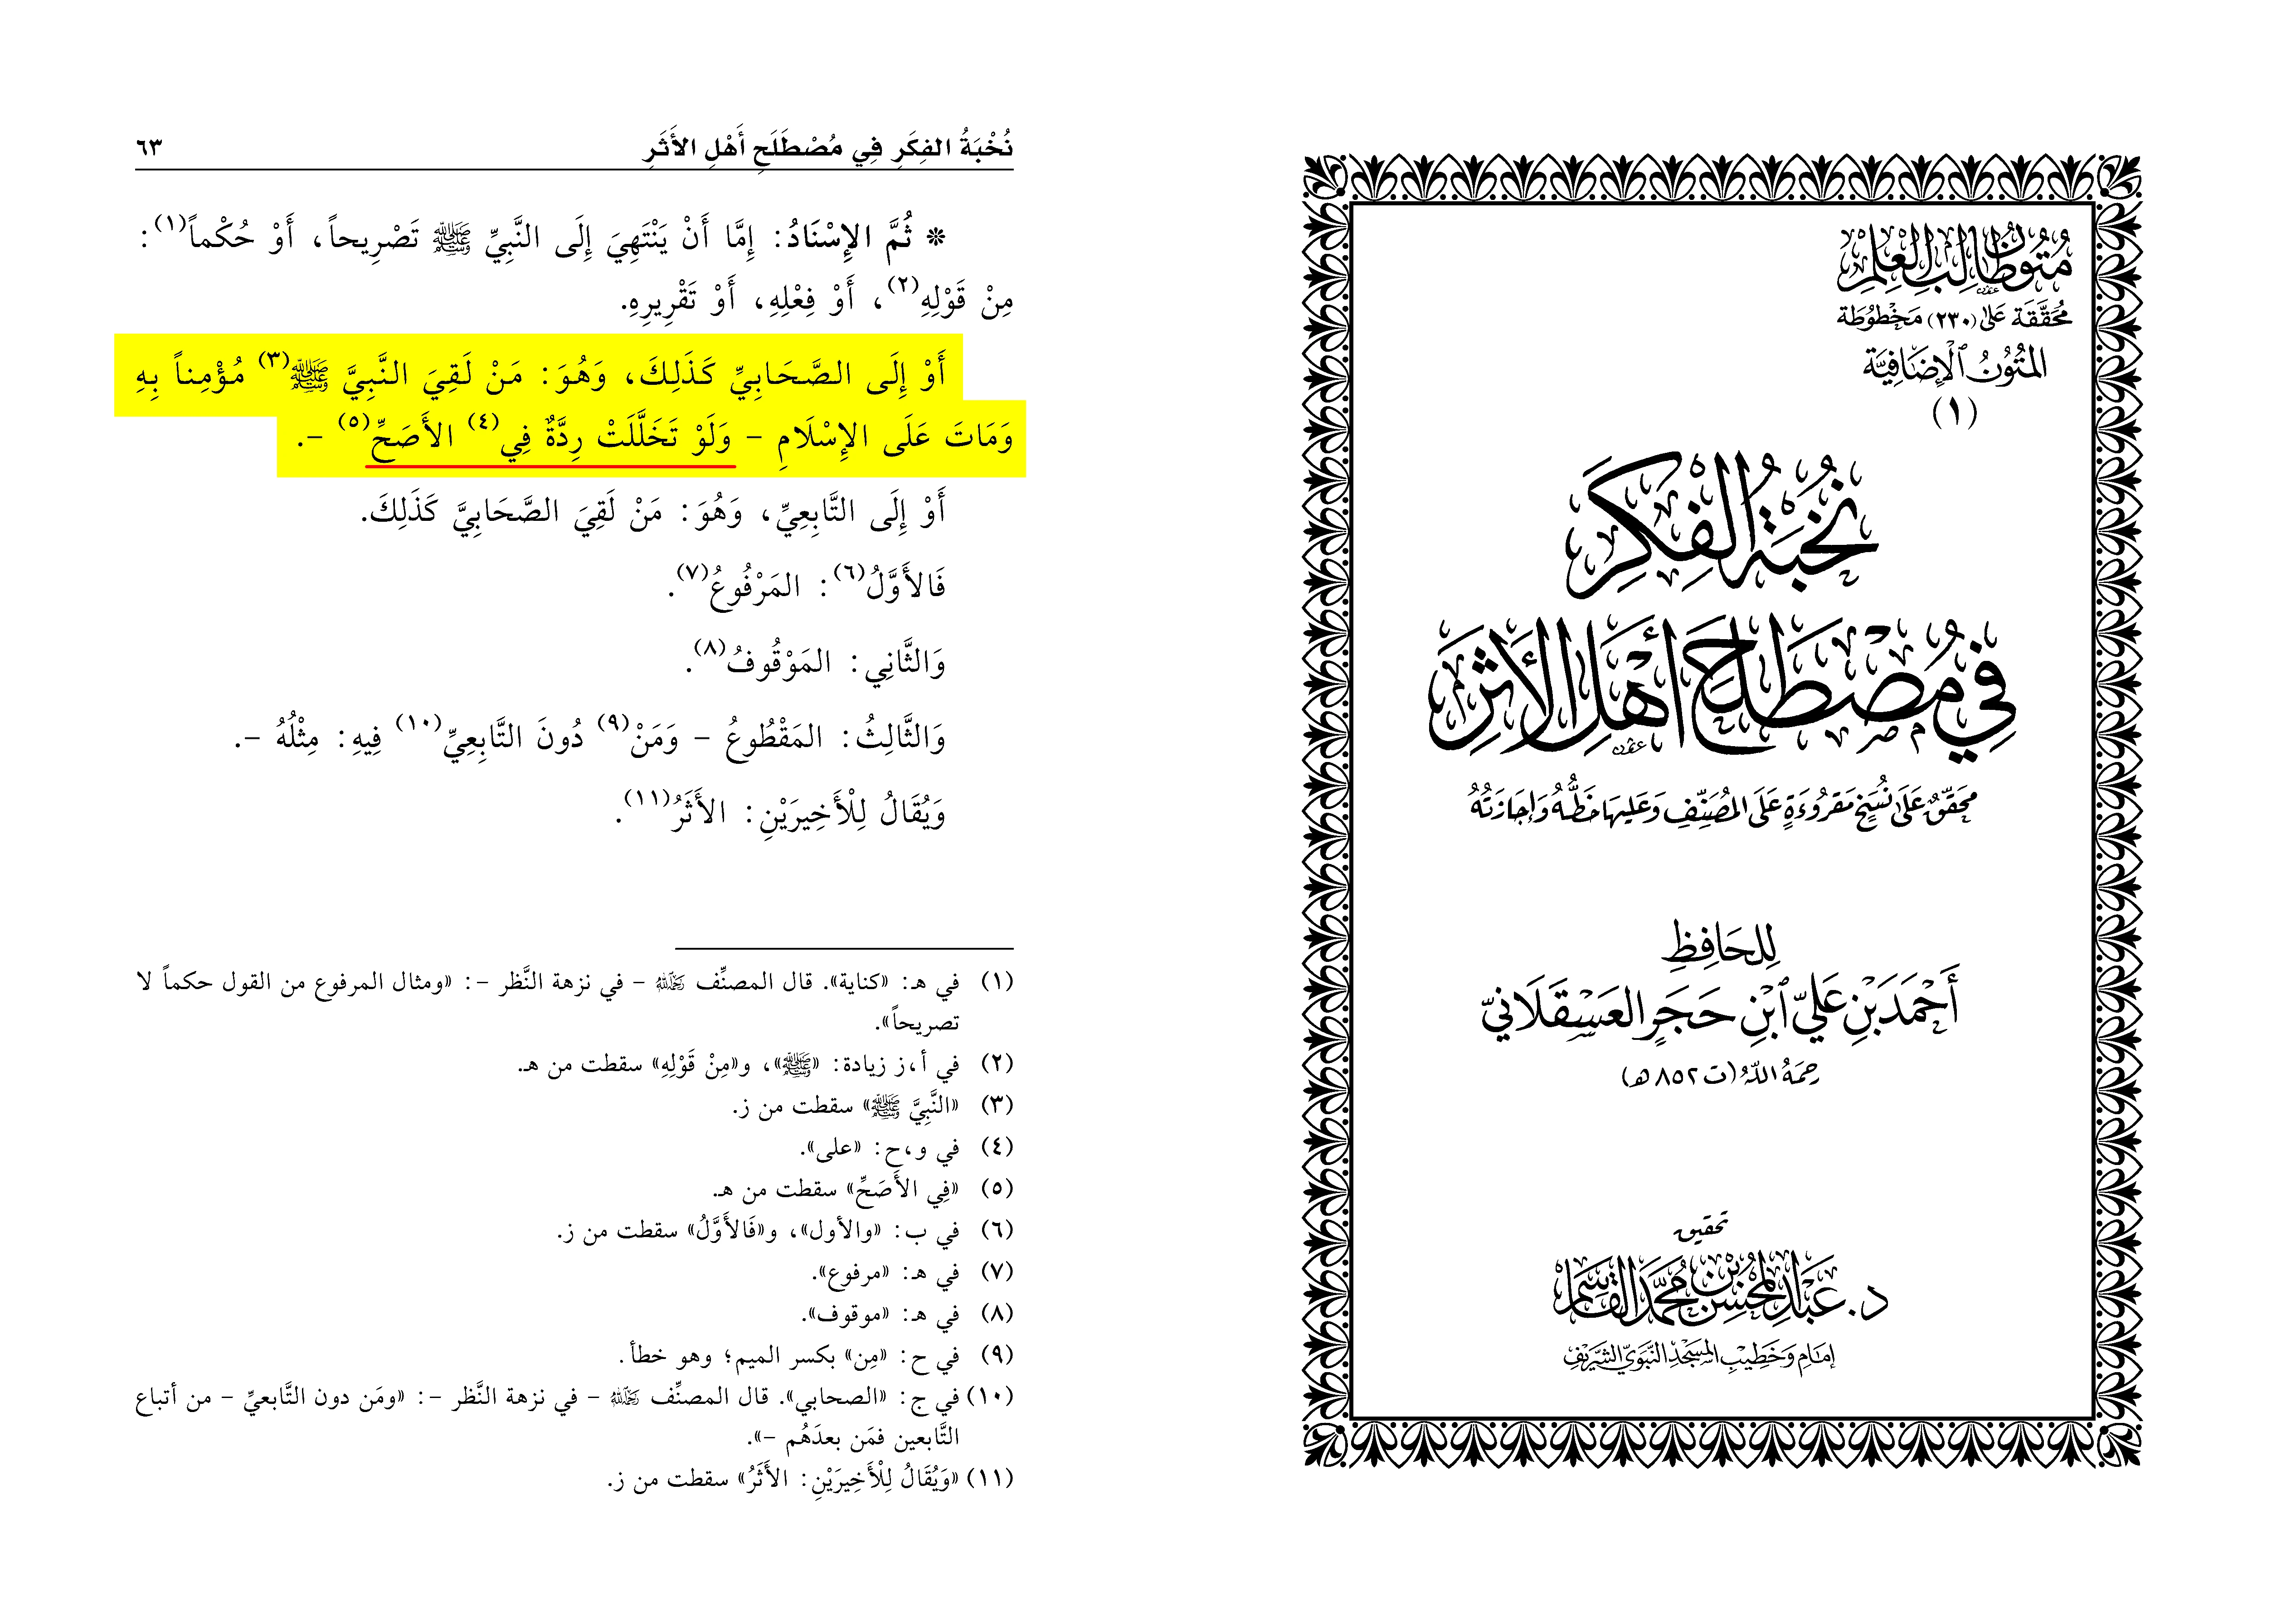 مُتُونُ طَالِبِ العِلْمِ
مُحَقَّقَة عَلَى (٢٣٠) مَخْطُوطَة
المُتُونُ الْإِضَافِيَّة
(١)
نُخْبَةُ الْفِكَرِ
فِي مُصْطَلَحِ أَهْلِ الْأَثَرِ
مُحَقَّقٌ عَلَى نُسَخٍ مَقْرُوءَةٍ عَلَى المُصَنِّفِ وَعَلَيهَا خَطُّهُ وَإِجَازَتُهُ
لِلحَافِظِ
أَحْمَدَ بْنِ عَلِيِّ ابْنِ حَجَرٍ العَسْقَلَانِيِّ
رَحِمَهُ اللَّهُ (ت ٨٥٢ هـ)
تحقيق
د. عَبْدِ المُحْسِنِ بْنِ مُحَمَّدٍ القَاسِم
إِمَامِ وَخَطِيبِ المَسْجِدِ النَّبَوِيِّ الشَّرِيفِ
نُخْبَةُ الفِكَرِ فِي مُصْطَلَحِ أَهْلِ الأَثَرِ ٦٣
* ثُمَّ الإِسْنَادُ: إِمَّا أَنْ يَنْتَهِيَ إِلَى النَّبِيِّ ﷺ تَصْرِيحاً، أَوْ حُكْماً(١):
مِنْ قَوْلِهِ(٢)، أَوْ فِعْلِهِ، أَوْ تَقْرِيرِهِ.
أَوْ إِلَى الصَّحَابِيِّ كَذَلِكَ، وَهُوَ: مَنْ لَقِيَ النَّبِيَّ ﷺ(٣) مُؤْمِناً بِهِ
وَمَاتَ عَلَى الإِسْلَامِ - وَلَوْ تَخَلَّلَتْ رِدَّةٌ فِي(٤) الأَصَحِّ(٥) -.
أَوْ إِلَى التَّابِعِيِّ، وَهُوَ: مَنْ لَقِيَ الصَّحَابِيَّ كَذَلِكَ.
فَالأَوَّلُ(٦): المَرْفُوعُ(٧).
وَالثَّانِي: المَوْقُوفُ(٨).
وَالثَّالِثُ: المَقْطُوعُ - وَمَنْ(٩) دُونَ التَّابِعِيِّ(١٠) فِيهِ: مِثْلُهُ -.
وَيُقَالُ لِلْأَخِيرَيْنِ: الأَثَرُ(١١).
(١) في هـ: «كناية». قال المصنِّف رحمه الله - في نزهة النَّظر -: «ومثال المرفوع من القول حكماً لا
تصريحاً».
(٢) في أ،ز زيادة: «ﷺ»، و«مِنْ قَوْلِهِ» سقطت من هـ.
(٣) «النَّبِيَّ ﷺ» سقطت من ز.
(٤) في و،ح: «على».
(٥) «فِي الأَصَحِّ» سقطت من هـ.
(٦) في ب: «والأول»، و«فَالأَوَّلُ» سقطت من ز.
(٧) في هـ: «مرفوع».
(٨) في هـ: «موقوف».
(٩) في ح: «مِن» بكسر الميم؛ وهو خطأ.
(١٠) في ج: «الصحابي». قال المصنِّف رحمه الله - في نزهة النَّظر -: «ومَن دون التَّابعيِّ - من أتباع
التَّابعين فمَن بعدَهُم -».
(١١) «وَيُقَالُ لِلْأَخِيرَيْنِ: الأَثَرُ» سقطت من ز.